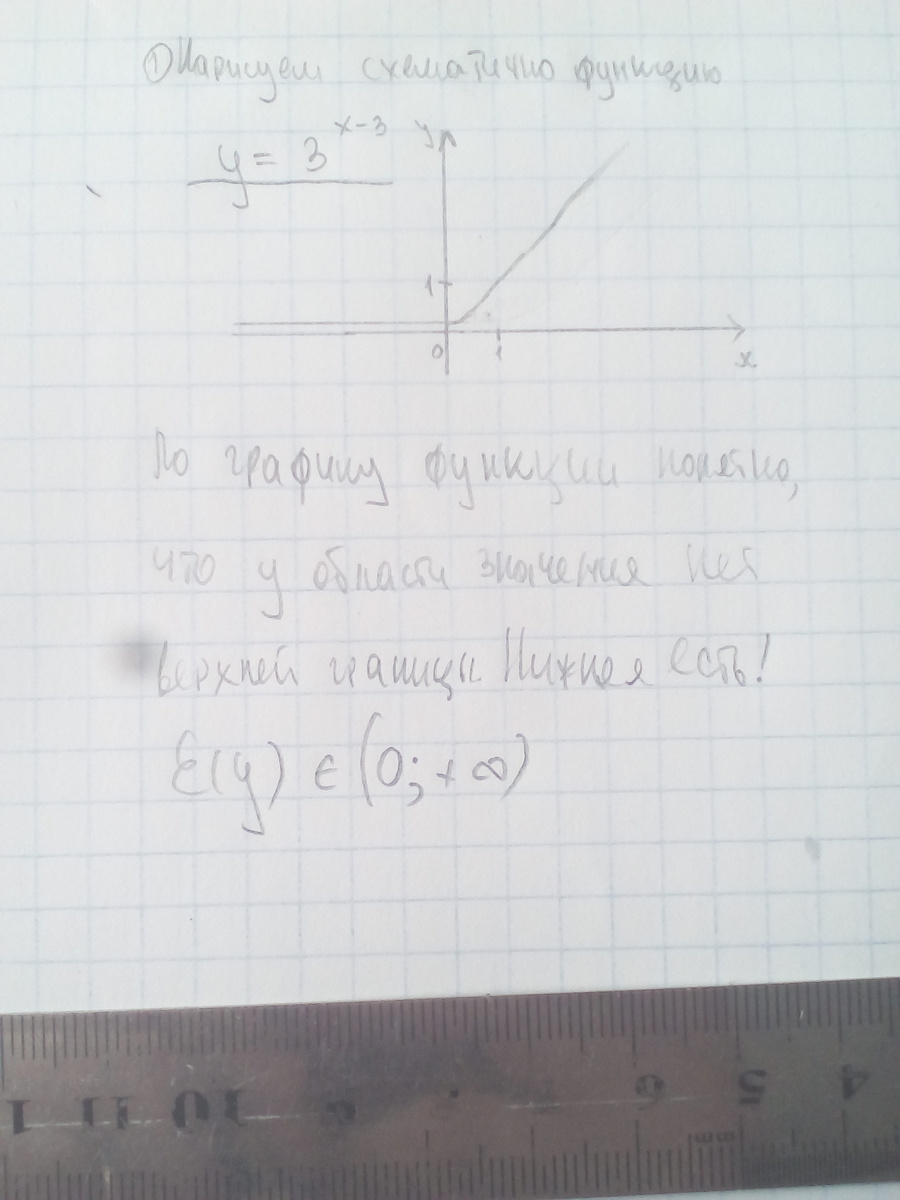 ① Нарисуем схематично функцию
y = 3^{x-3}
y
1
0
1
x
По графику функции понятно,
что у области значения нет
верхней границы. Нижняя есть!
E(y) ∈ (0; +∞)
1 11 10 6 5 4
mm